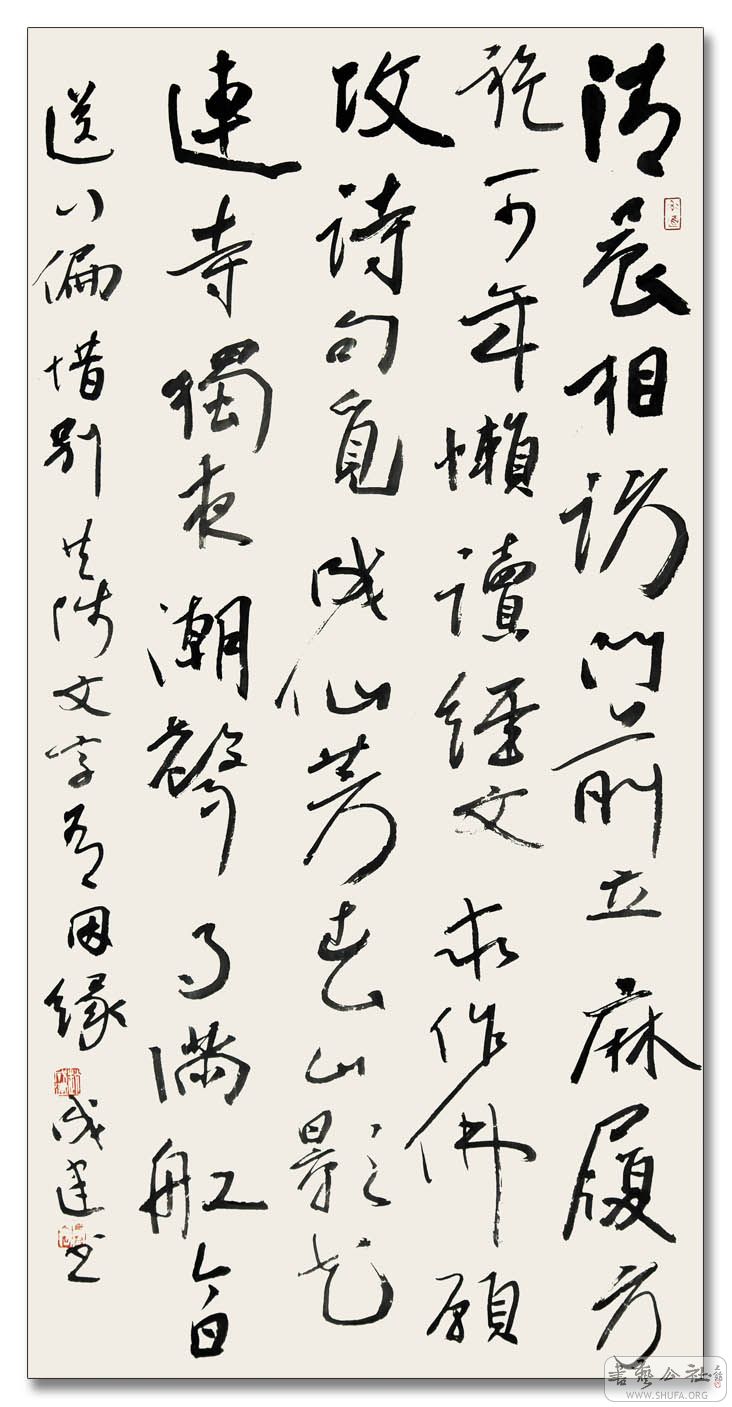 清晨相訪門前立麻履方
袍一少年懶讀經文求作佛願
攻詩句覓成仙芳春山影花
連寺獨夜潮聲月滿舡今日
送行偏惜別共師文字有因緣 成建書
書藝公社
WWW.SHUFA.ORG